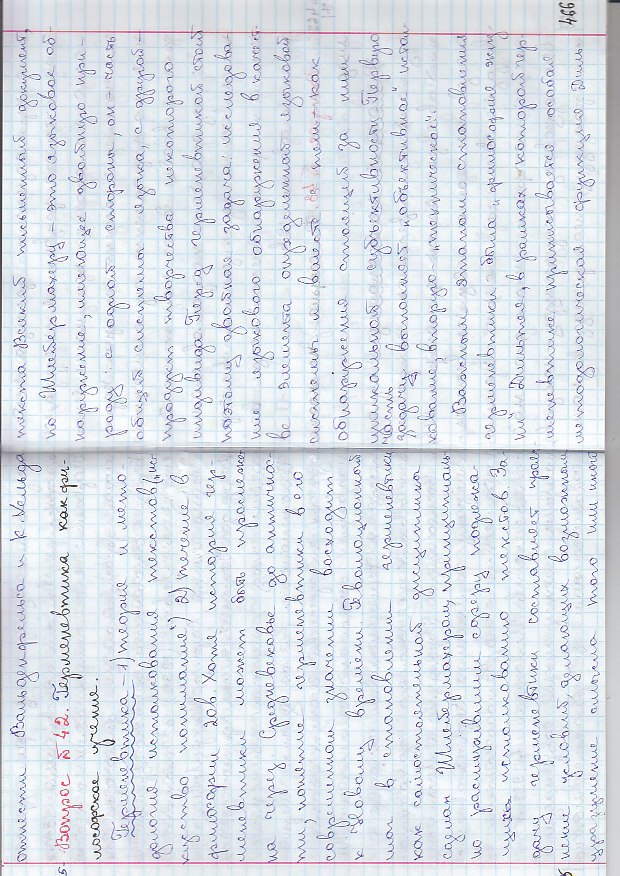 отнести Вальденфельса и К. Хельда
Вопрос №42. Герменевтика как фи-
лософское учение.
Герменевтика – 1) теория и мето-
дология истолкования текстов ("ис-
кусство понимания") 2) течение в
философии 20в. Хотя история гер-
меневтики может быть прослеже-
на через Средневековье до антично-
сти, понятие герменевтики в его
современном значении восходит
к Новому времени. Революционный
шаг в становлении герменевтики
как самостоятельной дисциплины
сделан Шлейермахером, принципиаль-
но расширившим сферу подлежа-
щих истолкованию текстов. За-
дачу герменевтики составляет прояс-
нение условий, делающих возможным
уразумение смысла того или иного
текста. Всякий письменный документ,
по Шлейермахеру – это языковое об-
наружение, имеющее двойную при-
роду: с одной стороны, он – часть
общей системы языка, с другой –
продукт творчества некоторого
индивида. Перед герменевтикой стоит
поэтому двойная задача: исследова-
ние языкового обнаружения в качест-
ве элемента определенной языковой
системы и вместе с тем, как
обнаружения стоящей за ним
уникальной субъективности. Первую
часть
задачу выполняет "объективное" истол-
кование, вторую – "техническое".
Важным этапом становления
герменевтики была "философия жиз-
ни" Дильтея, в рамках которой гер-
меневтике приписывается особая
методологическая функция. Диль-
466